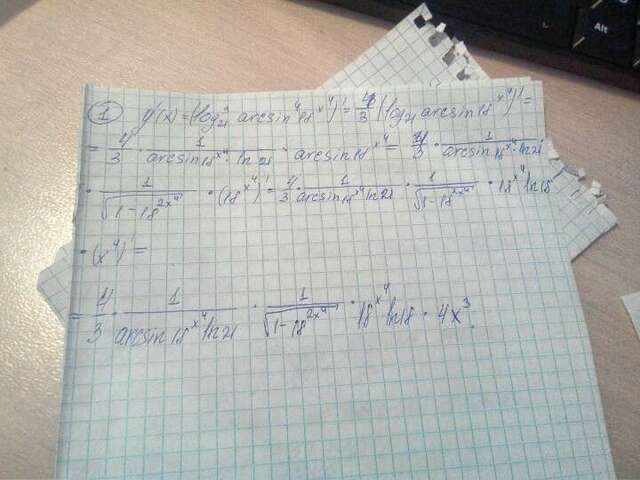 ① y'(x) = (log₂₁³ arcsin⁴ 18^(x⁴))' = 4/3 (log₂₁ arcsin 18^(x⁴))' =
= 4/3 · 1/(arcsin 18^(x⁴) · ln 21) · arcsin 18^(x⁴) = 4/3 · 1/(arcsin 18^(x⁴) · ln 21) ·
· 1/√(1-18^(2x⁴)) · (18^(x⁴))' = 4/3 · 1/(arcsin 18^(x⁴) ln 21) · 1/√(1-18^(2x⁴)) · 18^(x⁴) ln 18
· (x⁴)' =
= 4/3 · 1/(arcsin 18^(x⁴) ln 21) · 1/√(1-18^(2x⁴)) · 18^(x⁴) ln 18 · 4x³.
Alt